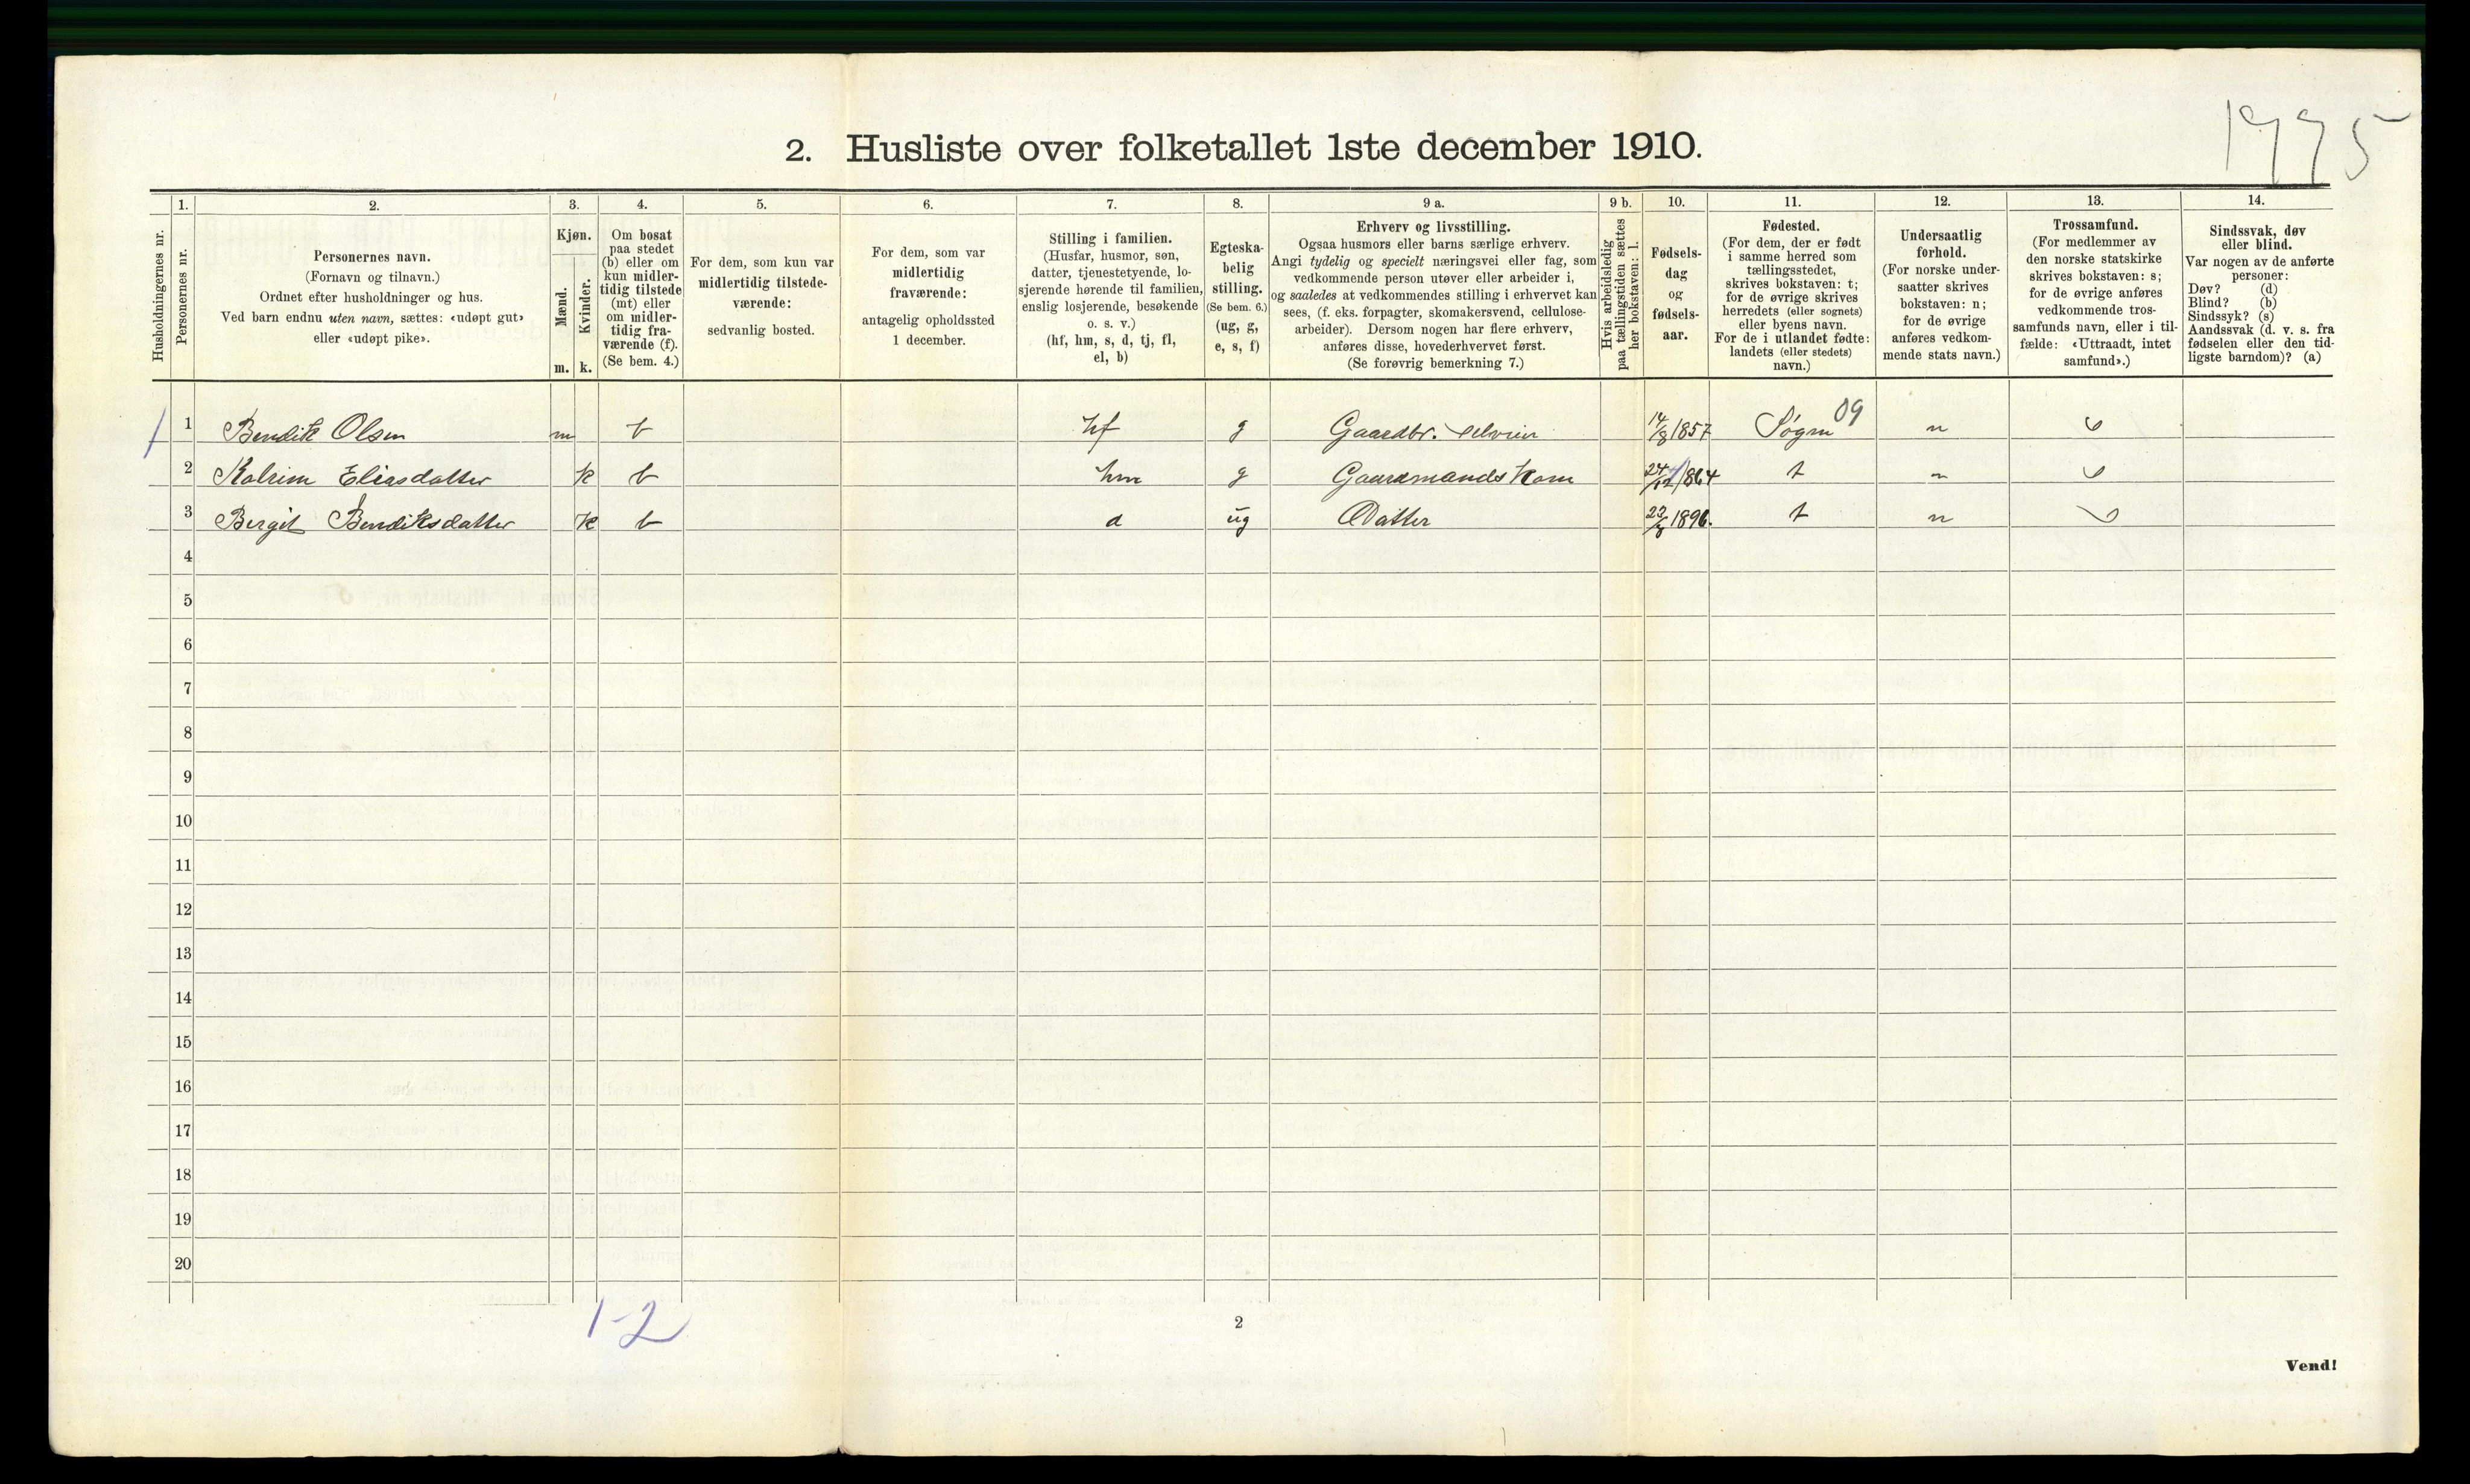 1775
2. Husliste over folketallet 1ste december 1910.
Husholdningernes nr.
1.
Personernes nr.
2.
Personernes navn.
(Fornavn og tilnavn.)
Ordnet efter husholdninger og hus.
Ved barn endnu uten navn, sættes: «udøpt gut»
eller «udøpt pike».
3.
Kjøn.
Mænd.
Kvinder.
m. k.
4.
Om bosat
paa stedet
(b) eller om
kun midler-
tidig tilstede
(mt) eller
om midler-
tidig fra-
værende (f).
(Se bem. 4.)
5.
For dem, som kun var
midlertidig tilstede-
værende:
sedvanlig bosted.
6.
For dem, som var
midlertidig
fraværende:
antagelig opholdssted
1 december.
7.
Stilling i familien.
(Husfar, husmor, søn,
datter, tjenestetyende, lo-
sjerende hørende til familien,
enslig losjerende, besøkende
o. s. v.)
(hf, hm, s, d, tj, fl,
el, b)
8.
Egteska-
belig
stilling.
(Se bem. 6.)
(ug, g,
e, s, f)
9 a.
Erhverv og livsstilling.
Ogsaa husmors eller barns særlige erhverv.
Angi tydelig og specielt næringsvei eller fag, som
vedkommende person utøver eller arbeider i,
og saaledes at vedkommendes stilling i erhvervet kan
sees, (f. eks. forpagter, skomakersvend, cellulose-
arbeider). Dersom nogen har flere erhverv,
anføres disse, hovederhvervet først.
(Se forøvrig bemerkning 7.)
9 b.
Hvis arbeidsledig
paa tællingstiden sættes
her bokstaven: l.
10.
Fødsels-
dag
og
fødsels-
aar.
11.
Fødested.
(For dem, der er født
i samme herred som
tællingsstedet,
skrives bokstaven: t;
for de øvrige skrives
herredets (eller sognets)
eller byens navn.
For de i utlandet fødte:
landets (eller stedets)
navn.)
12.
Undersaatlig
forhold.
(For norske under-
saatter skrives
bokstaven: n;
for de øvrige
anføres vedkom-
mende stats navn.)
13.
Trossamfund.
(For medlemmer av
den norske statskirke
skrives bokstaven: s;
for de øvrige anføres
vedkommende tros-
samfunds navn, eller i til-
fælde: «Uttraadt, intet
samfund».)
14.
Sindssvak, døv
eller blind.
Var nogen av de anførte
personer:
Døv? (d)
Blind? (b)
Sindssyk? (s)
Aandssvak (d. v. s. fra
fødselen eller den tid-
ligste barndom)? (a)
1 1 Bendik Olsen m b hf g Gaardbr. Selveier 14/8 1857 Søgne 09 n s
2 Katrine Eliasdatter k b hm g Gaardmandskone 24/12 1864 t n s
3 Bergit Bendiksdatter k b d ug Datter 23/8 1896. t n s
4
5
6
7
8
9
10
11
12
13
14
15
16
17
18
19
20
1-2
2
Vend!